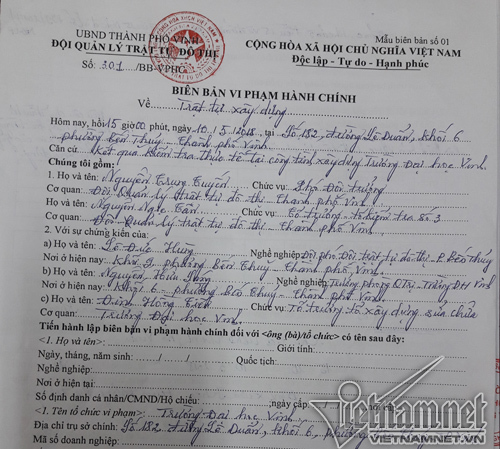 Mẫu biên bản số 01
UBND THÀNH PHỐ VINH
ĐỘI QUẢN LÝ TRẬT TỰ ĐÔ THỊ
CỘNG HÒA XÃ HỘI CHỦ NGHĨA VIỆT NAM
Độc lập - Tự do - Hạnh phúc
Số: 301 /BB-VPHC
BIÊN BẢN VI PHẠM HÀNH CHÍNH
Về Trật tự xây dựng
Hôm nay, hồi 15 giờ 00 phút, ngày 10/5/2018, tại Số 182, đường Lê Duẩn, Khối 6
phường Bến Thủy - Thành phố Vinh
Căn cứ: Kết quả kiểm tra thực tế tại công trình xây dựng Trường Đại học Vinh
Chúng tôi gồm:
1. Họ và tên: Nguyễn Trung Tuyến Chức vụ: Phó Đội trưởng
Cơ quan: Đội Quản lý trật tự đô thị - Thành phố Vinh
Họ và tên: Nguyễn Ngọc Tân Chức vụ: Tổ trưởng - Tổ kiểm tra số 3
Cơ quan: Đội Quản lý trật tự đô thị - Thành phố Vinh
2. Với sự chứng kiến của:
a) Họ và tên: Lê Đức Hùng Nghề nghiệp: Đội phó Đội trật tự đô thị - P. Bến Thủy
Nơi ở hiện nay: Khối 2, phường Bến Thủy - Thành phố Vinh
b) Họ và tên: Nguyễn Hữu Nghề nghiệp: Trưởng phòng QTrị - Trường ĐH Vinh
Nơi ở hiện nay: Khối 6 - phường Bến Thủy - Thành phố Vinh
c) Họ và tên: Đinh Hồng Tiến Chức vụ: Tổ trưởng tổ xây dựng sửa chữa
Cơ quan: Trường Đại học Vinh
Tiến hành lập biên bản vi phạm hành chính đối với <ông (bà)/tổ chức> có tên sau đây:
<1. Họ và tên>: Giới tính:
Ngày, tháng, năm sinh: / / Quốc tịch:
Nghề nghiệp:
Nơi ở hiện tại:
Số định danh cá nhân/CMND/Hộ chiếu: ngày cấp: / / nơi cấp:
<1. Tên tổ chức vi phạm>: Trường Đại học Vinh
Địa chỉ trụ sở chính: Số 182 đường Lê Duẩn, Khối 6, phường
Mã số doanh nghiệp:
vietnamnet
VIETNAMNET.VN